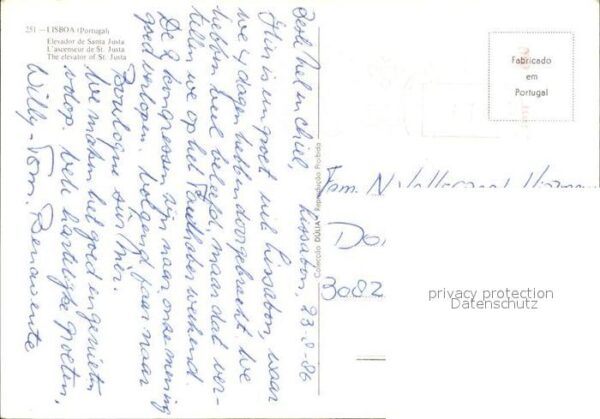 251 — LISBOA (Portugal)
Elevador de Santa Justa
L'ascenseur de St. Justa
The elevator of St. Justa
Fabricado
em
Portugal
Colecção DÚLIA — Reprodução Proibida
Lissabon, 23-8-86
Beste Nel en Chiel,
Hier is een groet uit Lissabon, waar
we 4 dagen hebben doorgebracht. We
hebben veel beleefd, maar dat ver-
tellen we op het weekend.
De 2 kongressen zijn naar onze mening
goed verlopen. Volgend jaar naar
Boulogne sur Mer.
We maken het goed en genieten
volop. Vele hartelijke groeten,
Willy - Tom. Benavente
Fam. N.
Do
3082
privacy protection
Datenschutz